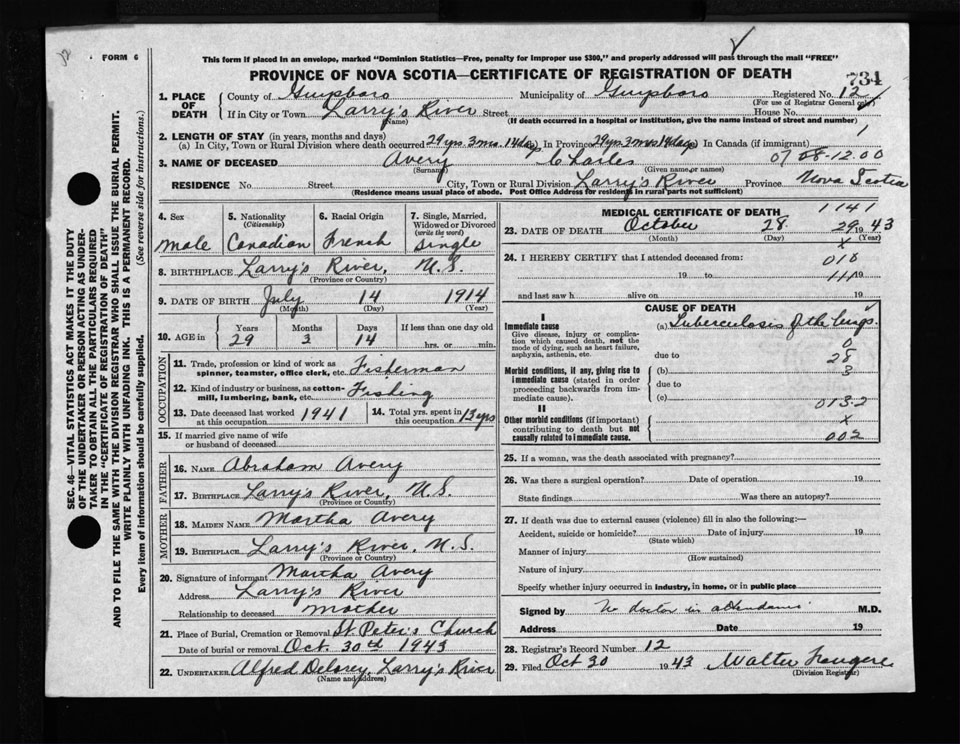 FORM 6
This form if placed in an envelope, marked "Dominion Statistics—Free, penalty for improper use $300," and properly addressed will pass through the mail "FREE"
PROVINCE OF NOVA SCOTIA—CERTIFICATE OF REGISTRATION OF DEATH
734
1. PLACE OF DEATH
County of Guysboro Municipality of Guysboro Registered No. 12
(For use of Registrar General only)
If in City or Town Larry's River Street House No.
(Name) (If death occurred in a hospital or institution, give the name instead of street and number)
2. LENGTH OF STAY (in years, months and days)
(a) In City, Town or Rural Division where death occurred 29 yrs 3 mos 14 days In Province 29 yrs 3 mos 14 days In Canada (if immigrant) 1
3. NAME OF DECEASED Avery Charles 07 08-12.00
(Surname) (Given name or names)
RESIDENCE No. Street City, Town or Rural Division Larry's River Province Nova Scotia
(Residence means usual place of abode. Post Office Address for residents in rural parts not sufficient)
SEC. 46—VITAL STATISTICS ACT MAKES IT THE DUTY
OF THE UNDERTAKER OR PERSON ACTING AS UNDER-
TAKER TO OBTAIN ALL THE PARTICULARS REQUIRED
IN THE "CERTIFICATE OF REGISTRATION OF DEATH"
AND TO FILE THE SAME WITH THE DIVISION REGISTRAR WHO SHALL ISSUE THE BURIAL PERMIT.
WRITE PLAINLY WITH UNFADING INK. THIS IS A PERMANENT RECORD.
Every item of information should be carefully supplied. (See reverse side for instructions.)
4. Sex
male
5. Nationality
(Citizenship)
Canadian
6. Racial Origin
French
7. Single, Married,
Widowed or Divorced
(write the word)
Single
8. BIRTHPLACE Larry's River, N.S.
(Province or Country)
9. DATE OF BIRTH July 14 1914
(Month) (Day) (Year)
10. AGE in
Years Months Days If less than one day old
29 3 14 hrs. or min.
OCCUPATION
11. Trade, profession or kind of work as
spinner, teamster, office clerk, etc. Fisherman
12. Kind of industry or business, as cotton-
mill, lumbering, bank, etc. Fishing
13. Date deceased last worked
at this occupation 1941
14. Total yrs. spent in
this occupation 13 yrs
15. If married give name of wife
or husband of deceased
FATHER
16. NAME Abraham Avery
17. BIRTHPLACE Larry's River, N.S.
(Province or Country)
MOTHER
18. MAIDEN NAME Martha Avery
19. BIRTHPLACE Larry's River, N.S.
(Province or Country)
20. Signature of informant Martha Avery
Address Larry's River
Relationship to deceased mother
21. Place of Burial, Cremation or Removal St. Peter's Church
Date of burial or removal Oct. 30th 1943
22. UNDERTAKER Alfred Delorey, Larry's River
(Name and address)
MEDICAL CERTIFICATE OF DEATH 1141
23. DATE OF DEATH October 28 29 1943
(Month) (Day) (Year)
x
24. I HEREBY CERTIFY that I attended deceased from: 018
19 to 111 19
and last saw h alive on 19
CAUSE OF DEATH
I
Immediate cause
Give disease, injury or complica-
tion which caused death, not the
mode of dying, such as heart failure,
asphyxia, asthenia, etc.
(a) Tuberculosis of the lungs
0
due to 28
Morbid conditions, if any, giving rise to
immediate cause (stated in order
proceeding backwards from im-
mediate cause).
(b) 3
due to
(c) 013.2
II
Other morbid conditions (if important)
contributing to death but not
causally related to immediate cause.
x
002
25. If a woman, was the death associated with pregnancy?
26. Was there a surgical operation? Date of operation 19
State findings Was there an autopsy?
27. If death was due to external causes (violence) fill in also the following:—
Accident, suicide or homicide? Date of injury 19
(State which)
Manner of injury
(How sustained)
Nature of injury
Specify whether injury occurred in industry, in home, or in public place
Signed by No doctor in attendance M.D.
Address Date 19
28. Registrar's Record Number 12
29. Filed Oct 30 1943 Walter Fougere
(Division Registrar)